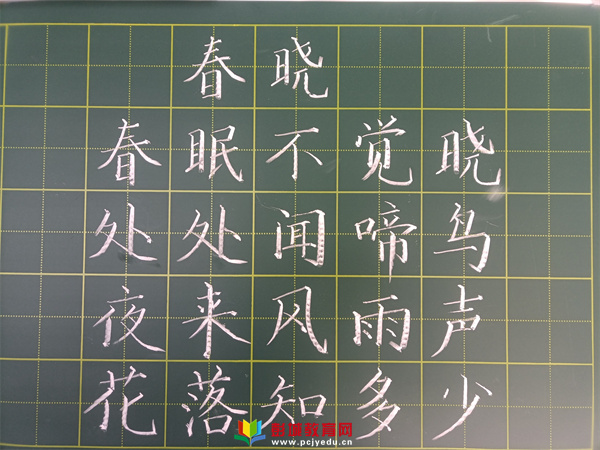 春晓
春眠不觉晓
处处闻啼鸟
夜来风雨声
花落知多少
www.pcjyedu.cn